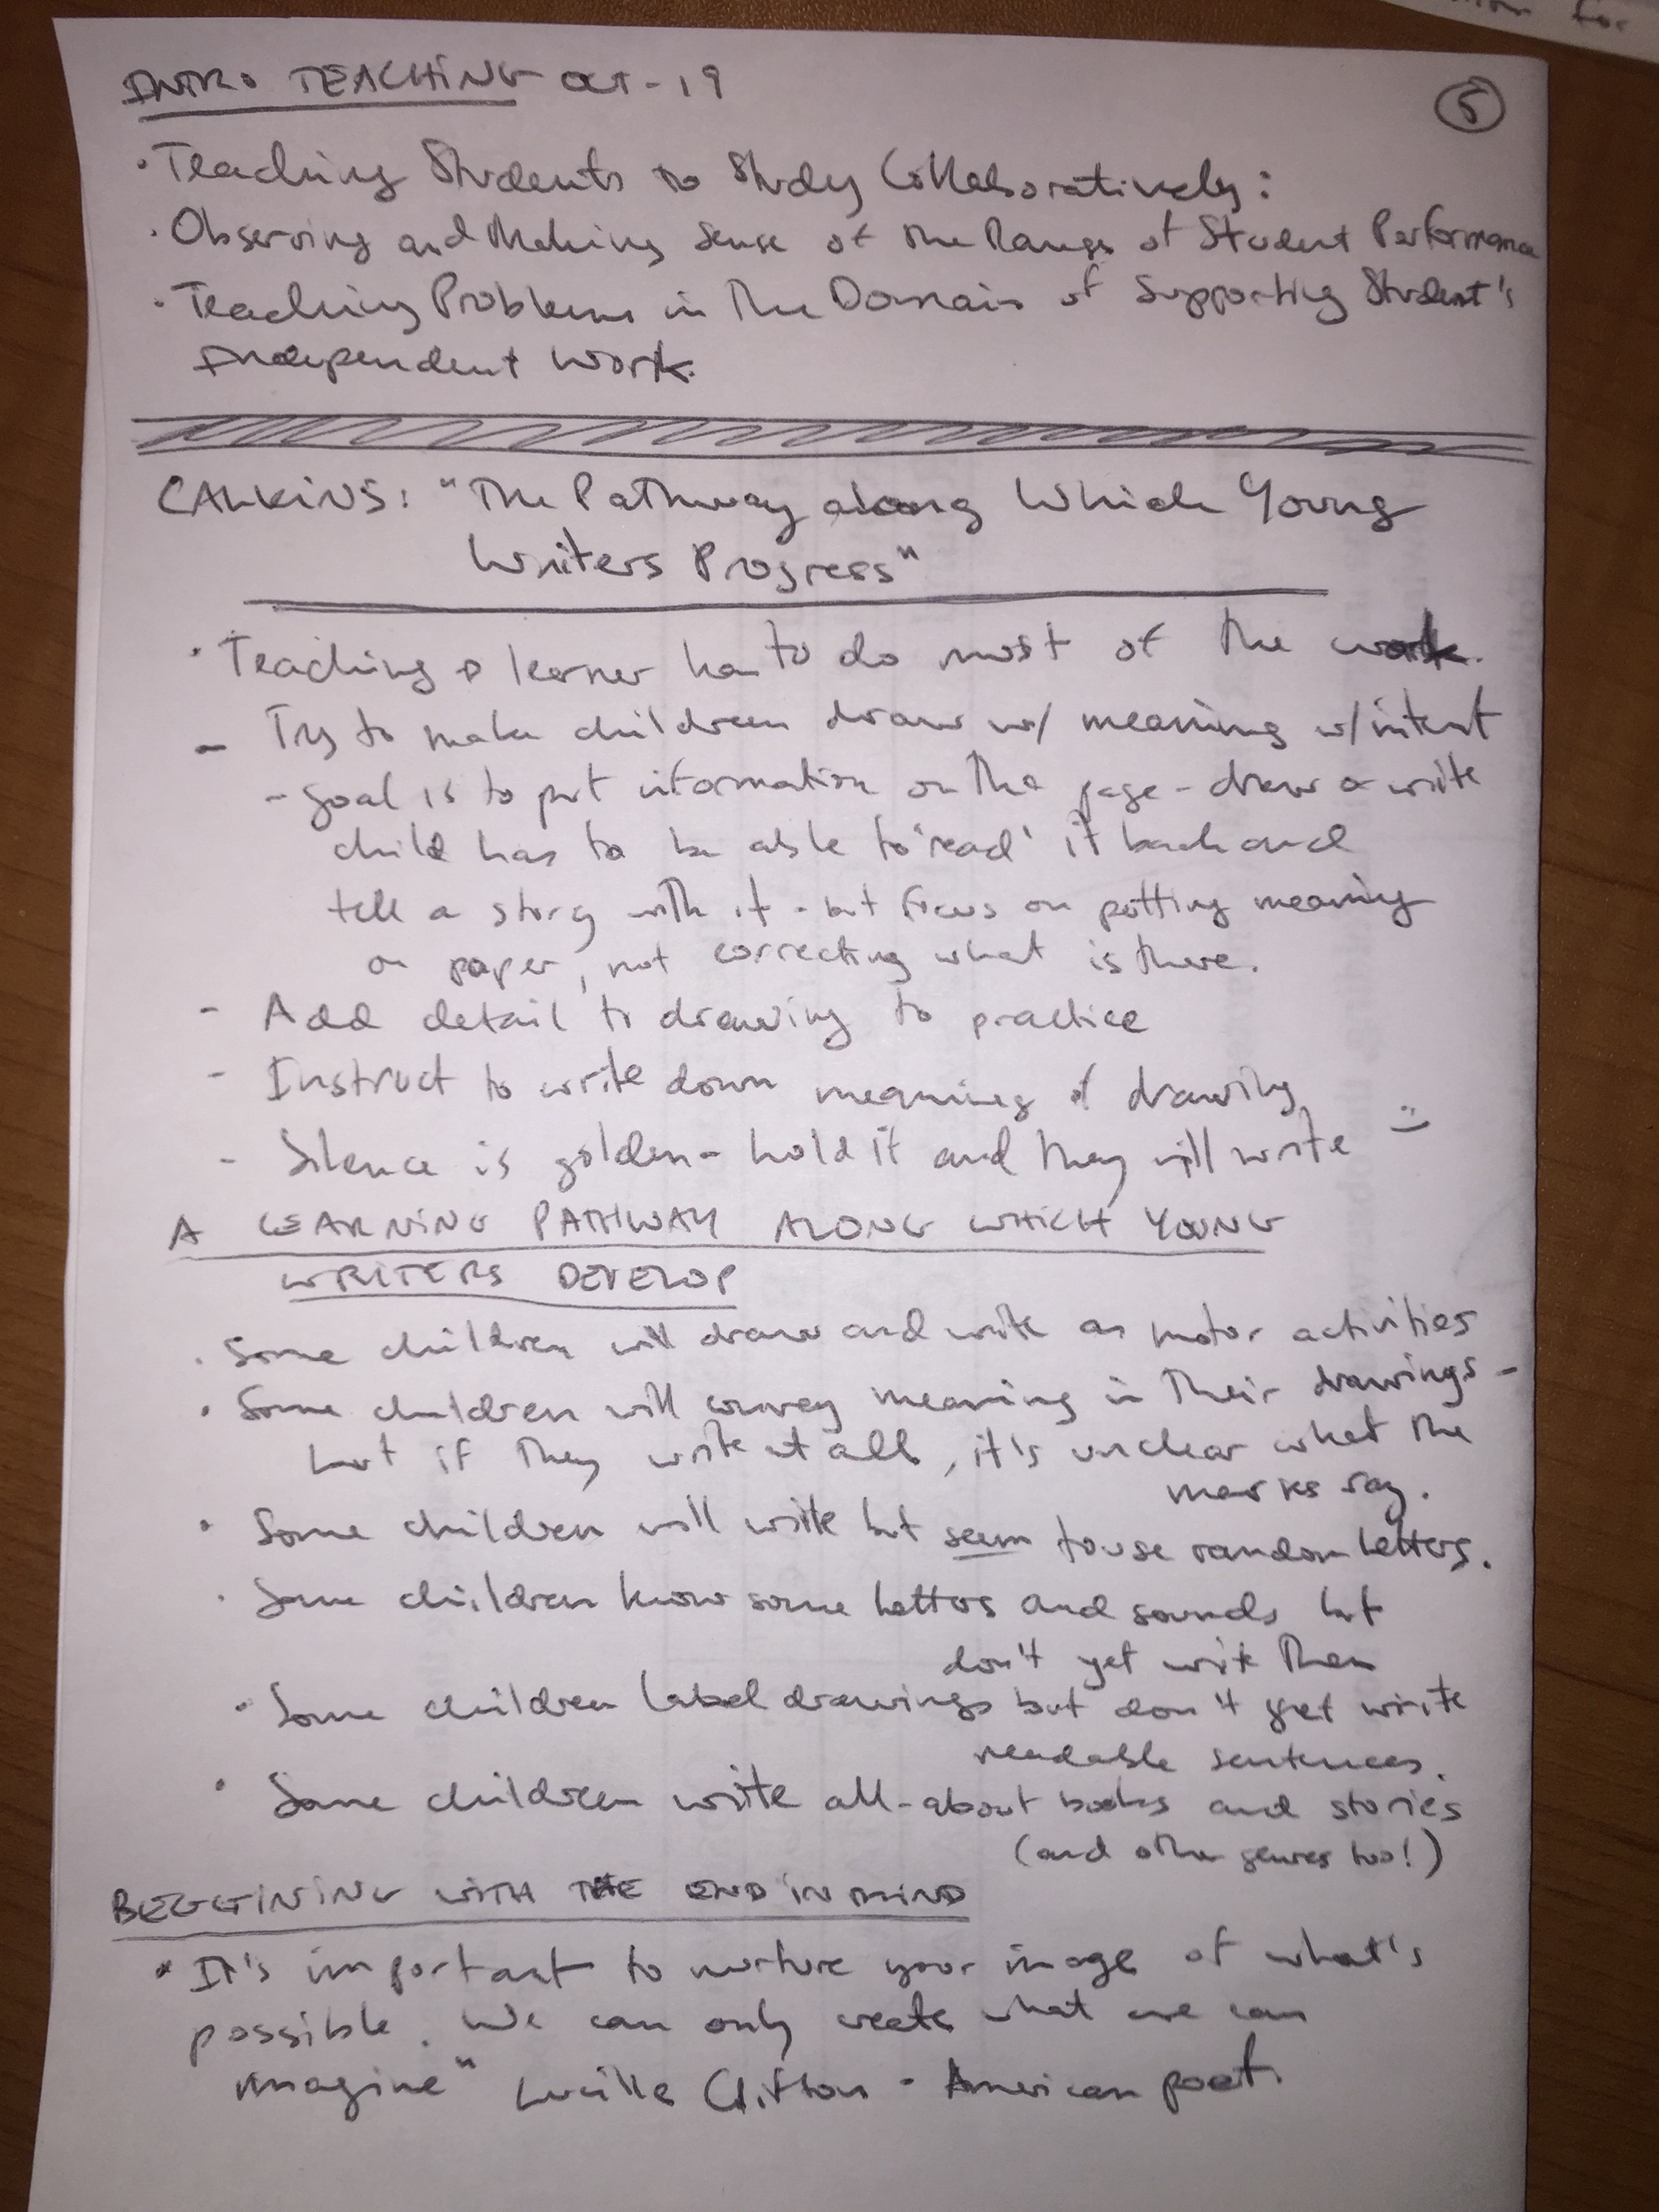 for
INTRO TEACHING OCT-19
5
· Teaching Students to Study Collaboratively:
· Observing and Making Sense of the Range of Student Performance
· Teaching Problems in the Domain of Supporting Student's
Independent Work.
CALKINS: "The Pathway along Which Young
Writers Progress"
· Teaching learner has to do most of the work.
- Try to make children draw w/ meaning w/intent
- goal is to put information on the page - draw or write
child has to be able to 'read' it back and
tell a story with it - but focus on putting meaning
on paper, not correcting what is there.
- Add detail to drawing to practice
- Instruct to write down meaning of drawing
- Silence is golden - hold it and they will write :)
A LEARNING PATHWAY ALONG WHICH YOUNG
WRITERS DEVELOP
· Some children will draw and write as motor activities
· Some children will convey meaning in their drawings -
but if they write at all, it's unclear what the
marks say.
· Some children will write but seem to use random letters.
· Some children know some letters and sounds but
don't yet write them
· Some children label drawings but don't yet write
readable sentences.
· Some children write all-about books and stories
(and other genres too!)
BEGGINING WITH THE END IN MIND
" It's important to nurture your image of what's
possible. We can only create what we can
imagine" Lucille Clifton - American poet.